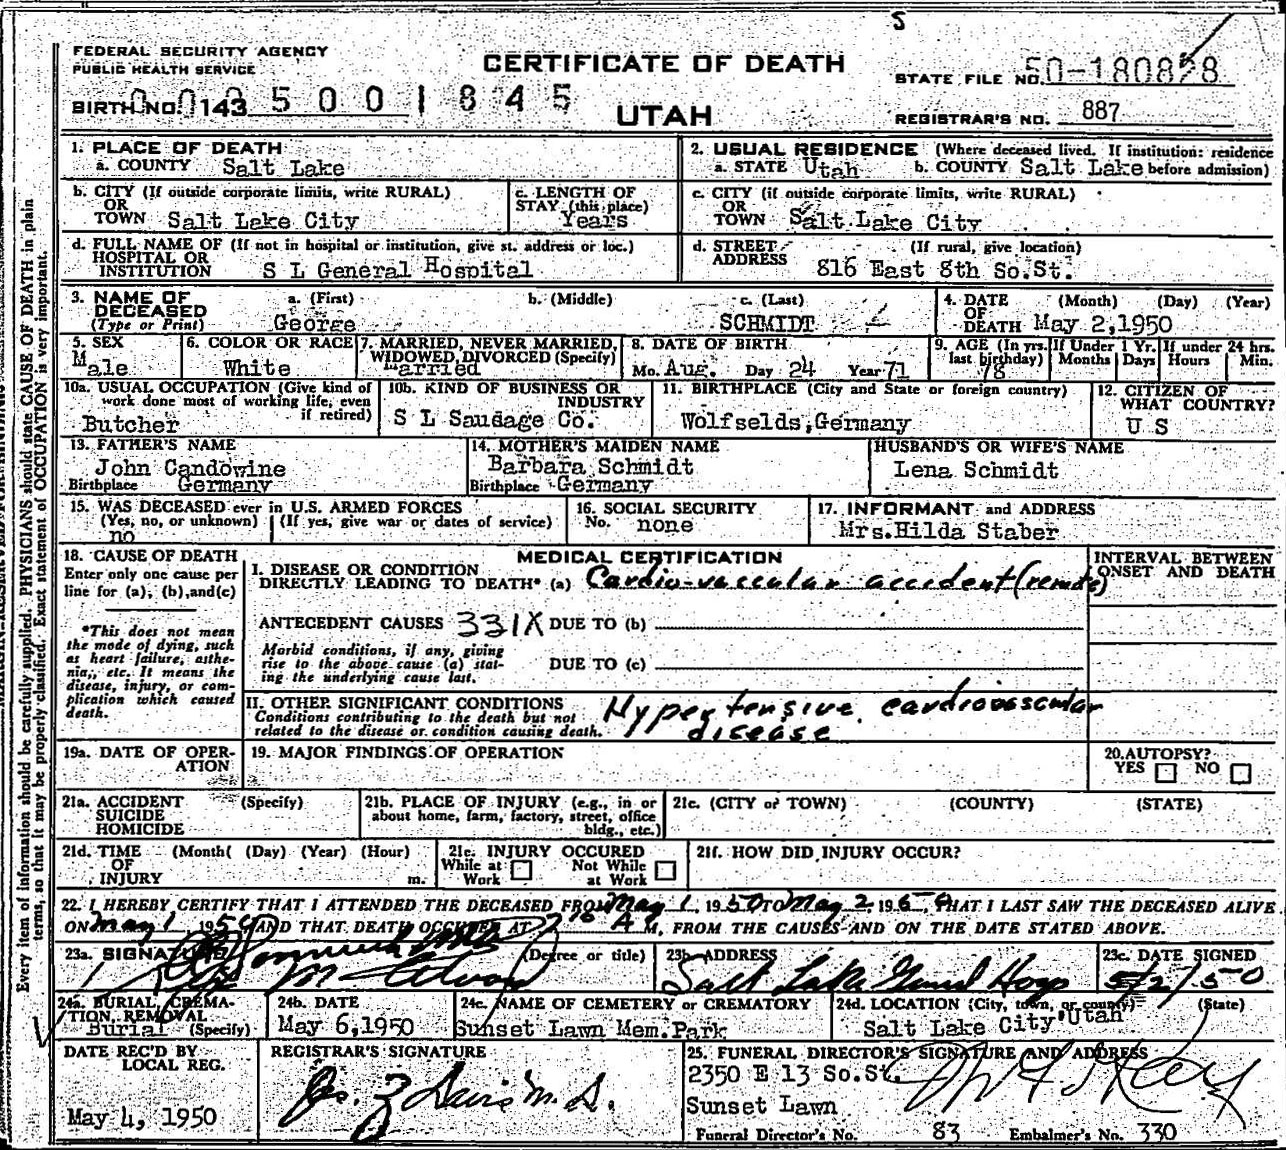 S
FEDERAL SECURITY AGENCY
PUBLIC HEALTH SERVICE
CERTIFICATE OF DEATH
STATE FILE NO. 50-180828
BIRTH NO. 143 5001845
UTAH
REGISTRAR'S NO. 887
1. PLACE OF DEATH
a. COUNTY Salt Lake
2. USUAL RESIDENCE (Where deceased lived. If institution: residence
a. STATE Utah b. COUNTY Salt Lake before admission)
b. CITY (If outside corporate limits, write RURAL)
OR
TOWN Salt Lake City
c. LENGTH OF
STAY (this place)
Years
c. CITY (if outside corporate limits, write RURAL)
OR
TOWN Salt Lake City
d. FULL NAME OF (If not in hospital or institution, give st. address or loc.)
HOSPITAL OR
INSTITUTION S L General Hospital
d. STREET (If rural, give location)
ADDRESS 816 East 8th So.St.
3. NAME OF
DECEASED
(Type or Print)
a. (First) b. (Middle) c. (Last)
George SCHMIDT
4. DATE (Month) (Day) (Year)
OF
DEATH May 2,1950
5. SEX
Male
6. COLOR OR RACE
White
7. MARRIED, NEVER MARRIED,
WIDOWED, DIVORCED (Specify)
Married
8. DATE OF BIRTH
Mo. Aug. Day 24 Year 71
9. AGE (In yrs.
last birthday)
78
If Under 1 Yr.
Months Days
If under 24 hrs.
Hours Min.
10a. USUAL OCCUPATION (Give kind of
work done most of working life, even
if retired)
Butcher
10b. KIND OF BUSINESS OR
INDUSTRY
S L Sausage Co.
11. BIRTHPLACE (City and State or foreign country)
Wolfselds,Germany
12. CITIZEN OF
WHAT COUNTRY?
U S
13. FATHER'S NAME
John Candowine
Birthplace Germany
14. MOTHER'S MAIDEN NAME
Barbara Schmidt
Birthplace Germany
HUSBAND'S OR WIFE'S NAME
Lena Schmidt
15. WAS DECEASED ever in U.S. ARMED FORCES
(Yes, no, or unknown) (If yes, give war or dates of service)
no
16. SOCIAL SECURITY
No. none
17. INFORMANT and ADDRESS
Mrs.Hilda Staber
18. CAUSE OF DEATH
Enter only one cause per
line for (a), (b), and (c)
*This does not mean
the mode of dying, such
as heart failure, asthe-
nia, etc. It means the
disease, injury, or com-
plication which caused
death.
MEDICAL CERTIFICATION
I. DISEASE OR CONDITION
DIRECTLY LEADING TO DEATH* (a) Cardio-vascular accident (remote)
ANTECEDENT CAUSES 331X DUE TO (b)
Morbid conditions, if any, giving
rise to the above cause (a) stat-
ing the underlying cause last.
DUE TO (c)
II. OTHER SIGNIFICANT CONDITIONS
Conditions contributing to the death but not
related to the disease or condition causing death.
Hypertensive cardiovascular
disease
INTERVAL BETWEEN
ONSET AND DEATH
19a. DATE OF OPER-
ATION
19. MAJOR FINDINGS OF OPERATION
20. AUTOPSY?
YES NO
21a. ACCIDENT (Specify)
SUICIDE
HOMICIDE
21b. PLACE OF INJURY (e.g., in or
about home, farm, factory, street, office
bldg., etc.)
21c. (CITY or TOWN) (COUNTY) (STATE)
21d. TIME (Month( (Day) (Year) (Hour)
OF
INJURY m.
21e. INJURY OCCURED
While at Work Not While at Work
21f. HOW DID INJURY OCCUR?
22. I HEREBY CERTIFY THAT I ATTENDED THE DECEASED FROM May 1, 1950 TO May 2, 1950, THAT I LAST SAW THE DECEASED ALIVE
ON May 1 1950 AND THAT DEATH OCCURED AT A M. FROM THE CAUSES AND ON THE DATE STATED ABOVE.
23a. SIGNATURE (Degree or title)
23b. ADDRESS
Salt Lake Genl Hosp
23c. DATE SIGNED
5/2/50
24a. BURIAL, CREMA-
TION, REMOVAL
Burial (Specify)
24b. DATE
May 6,1950
24c. NAME OF CEMETERY or CREMATORY
Sunset Lawn Mem.Park
24d. LOCATION (City, town, or county) (State)
Salt Lake City, Utah
DATE REC'D BY
LOCAL REG.
May 4, 1950
REGISTRAR'S SIGNATURE
Jos. Z Davis M.D.
25. FUNERAL DIRECTOR'S SIGNATURE AND ADDRESS
2350 E 13 So.St.
Sunset Lawn
Funeral Director's No. 83 Embalmer's No. 330
Every item of information should be carefully supplied. PHYSICIANS should state CAUSE OF DEATH in plain
terms, so that it may be properly classified. Exact statement of OCCUPATION is very important.